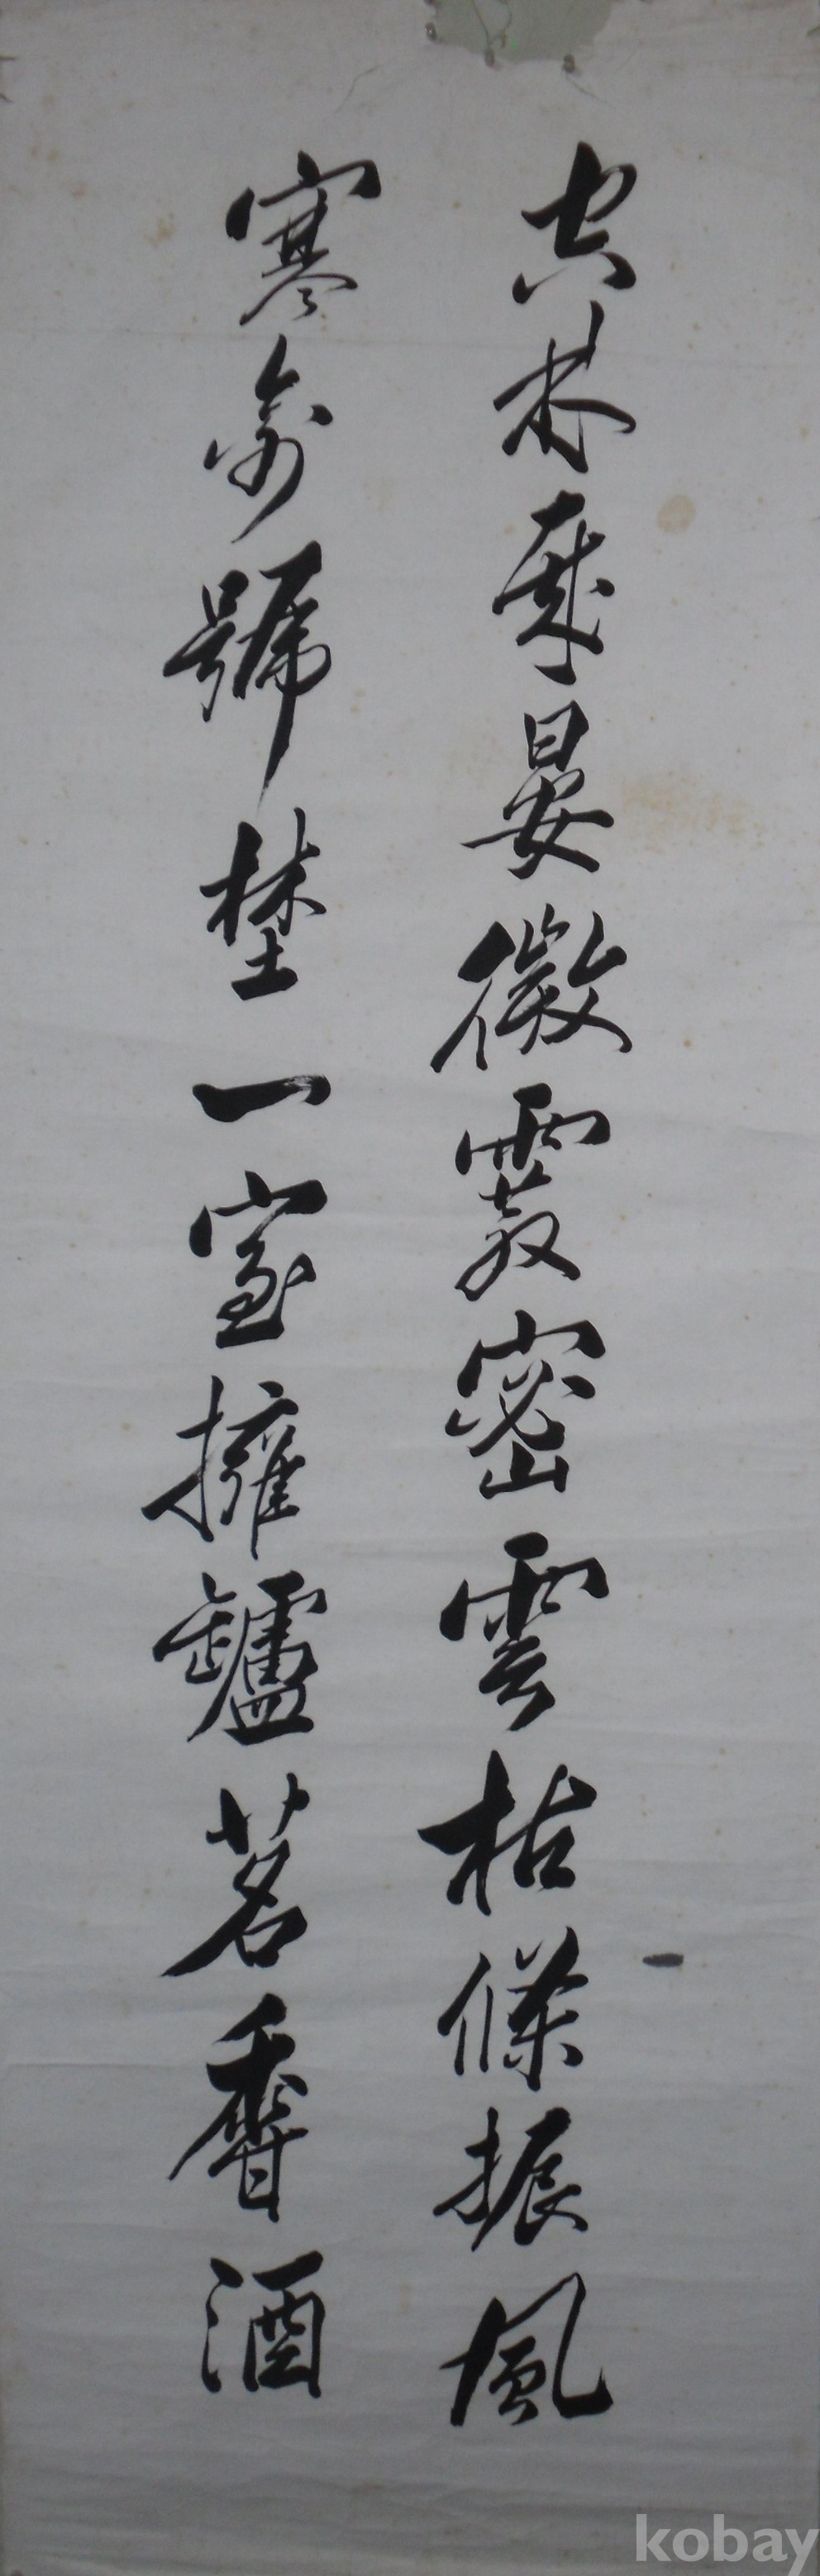 空林歲晏微霰密雲枯條振風
寒禽號埜一室擁罏茗香酒
kobay